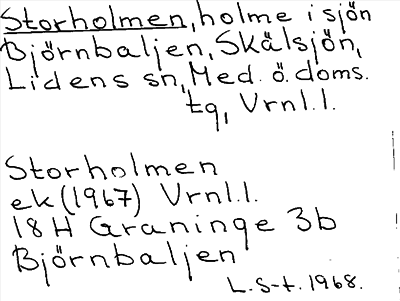 Storholmen, holme i sjön
Björnbaljen, Skälsjön,
Lidens sn, Med. ö. doms.
tg, Vrnl.l.
Storholmen
ek (1967) Vrnl.l.
18H Graninge 3b
Björnbaljen
L. S-t. 1968.